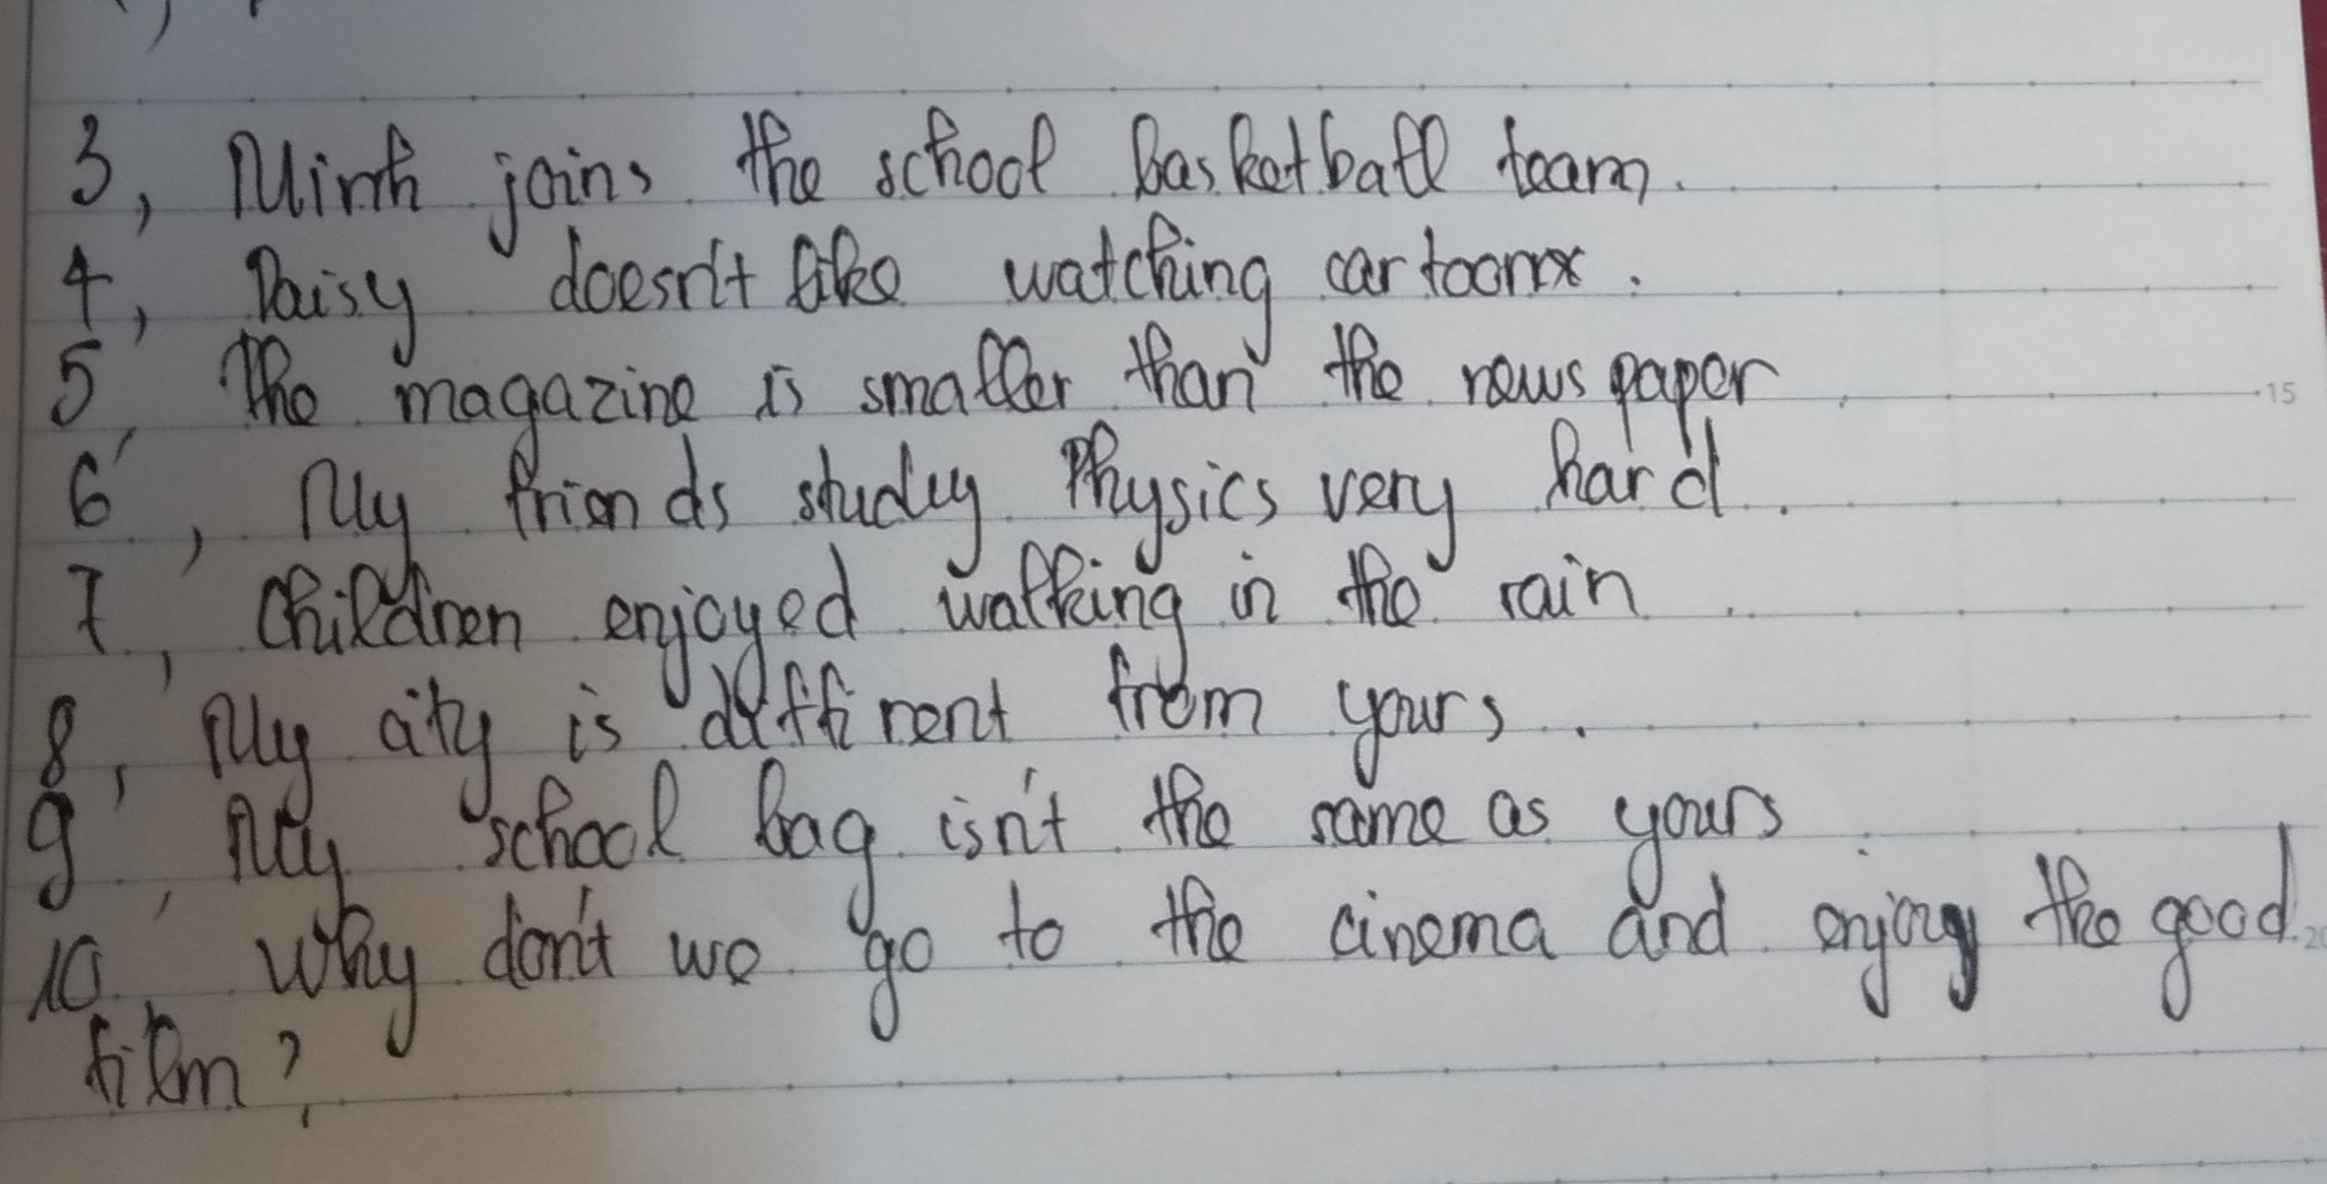 3, Minh joins the school basketball team.
4, Daisy doesn't like watching cartoons.
5, The magazine is smaller than the newspaper.
6, My friends study Physics very hard.
7, Children enjoyed walking in the rain.
8, My city is diffirent from yours.
9, My school bag isn't the same as yours.
10, Why don't we go to the cinema and enjoy the good
film?